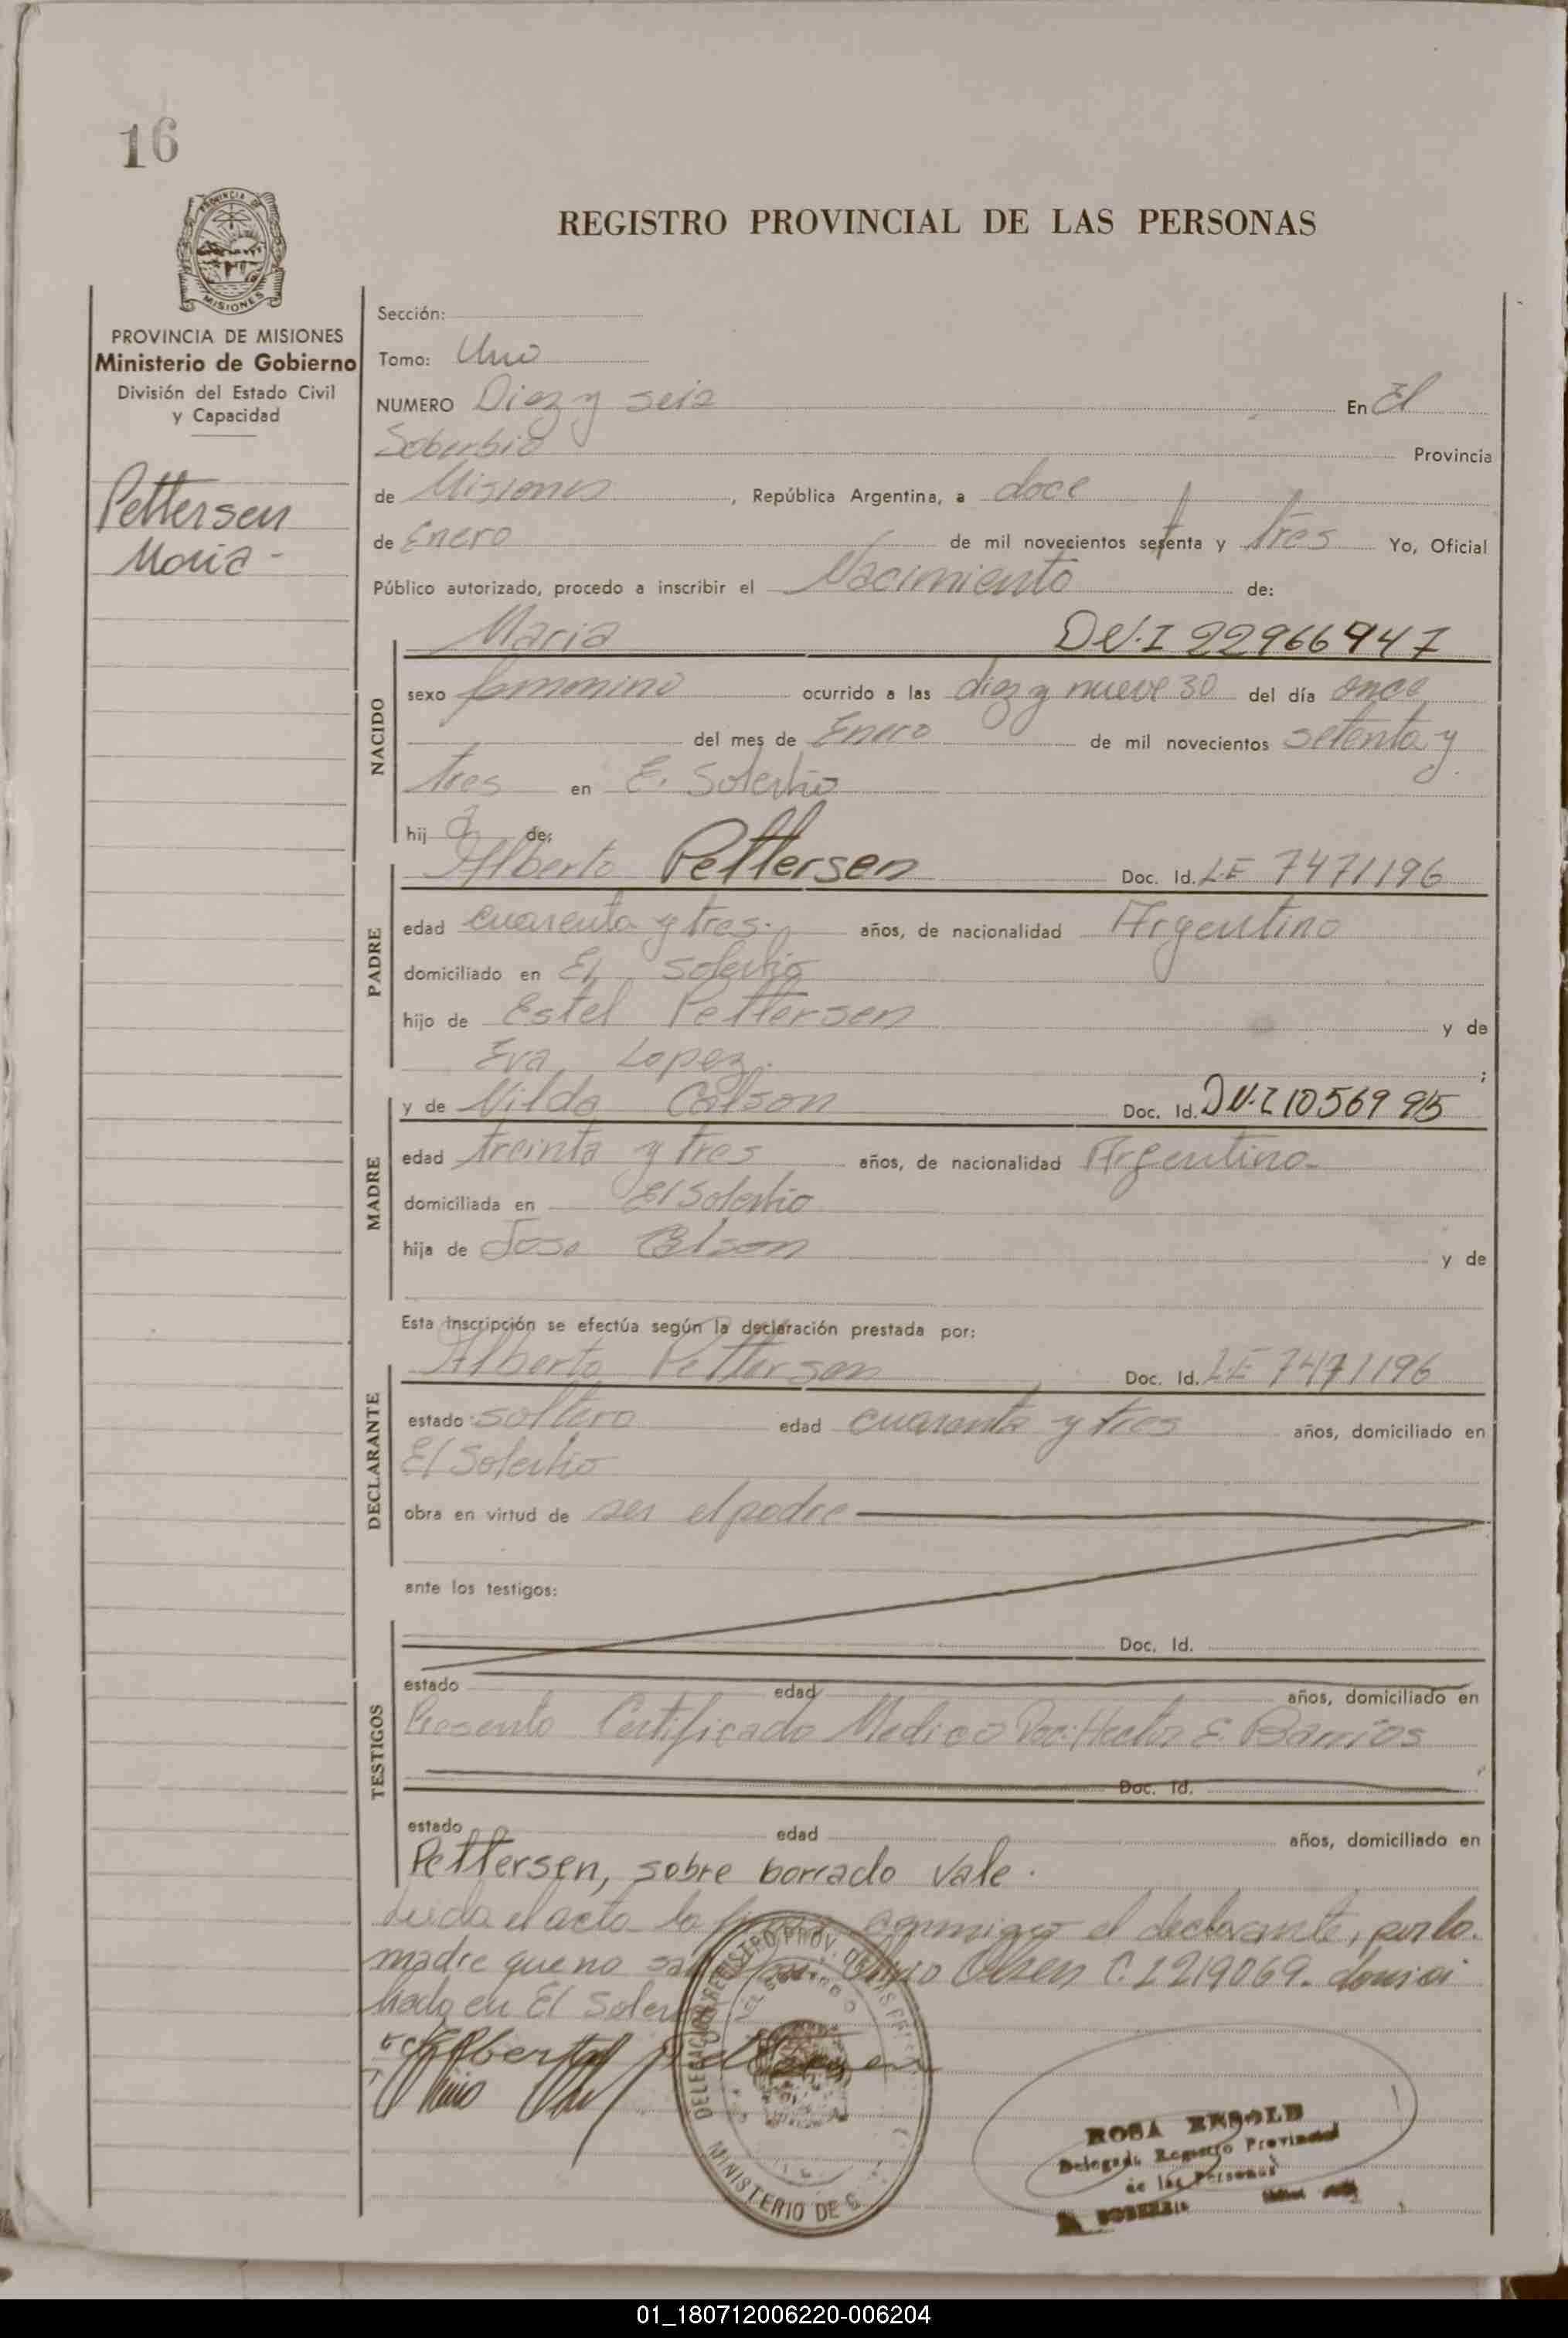 16
PROVINCIA DE
MISIONES
PROVINCIA DE MISIONES
Ministerio de Gobierno
División del Estado Civil
y Capacidad
Pettersen
Maria -
REGISTRO PROVINCIAL DE LAS PERSONAS
Sección:
Tomo: Uno
NUMERO Diez y seis En El
Soberbio Provincia
de Misiones, República Argentina, a doce
de Enero de mil novecientos setenta y tres Yo, Oficial
Público autorizado, procedo a inscribir el Nacimiento de:
NACIDO
Maria DN.I 22966947
sexo femenino ocurrido a las diez y nueve 30 del día once
del mes de Enero de mil novecientos setenta y
tres en E. Soberbio
hij a de:
PADRE
Alberto Pettersen Doc. Id. L.E 7471196
edad cuarenta y tres. años, de nacionalidad Argentino
domiciliado en El Soberbio
hijo de Estel Pettersen y de
Eva Lopez. ;
MADRE
y de Nilda Calson Doc. Id. DN.I 10569 95
edad treinta y tres años, de nacionalidad Argentina-
domiciliada en El Soberbio
hija de Jose Calson y de
Esta inscripción se efectúa según la declaración prestada por:
DECLARANTE
Alberto Pettersen Doc. Id. LE 7471196
estado soltero edad cuarenta y tres años, domiciliado en
El Soberbio
obra en virtud de ser el padre
ante los testigos:
TESTIGOS
Doc. Id.
estado edad años, domiciliado en
Presento Certificado Medico Doc: Hector E. Barrios
Doc. Id.
estado edad años, domiciliado en
Pettersen, sobre borrado vale.
Leida el acta la conmigo el declarante, por la
madre que no Olsen C. 1219069. domici
liado en El
Alberto Pettersen
DELEGACION REGISTRO PROV. DE LAS
MINISTERIO DE G
ROSA
Delegada Registro Provincial
de las Personas
SOBERBIO
01_180712006220-006204